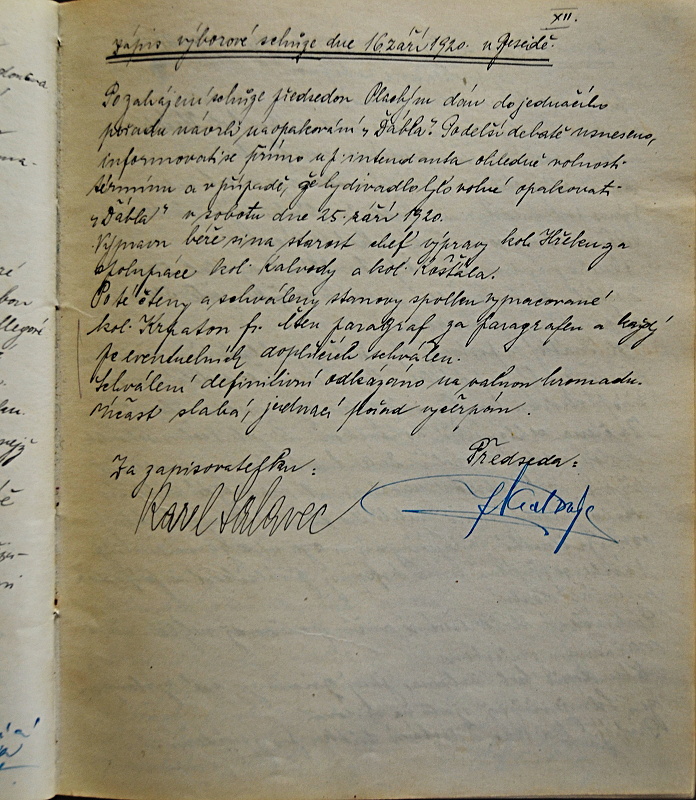 XII.
Zápis výborové schůze dne 16 září 1920. v Besedě.
Po zahájení schůze předsedou Plachým dán do jednacího
pořadu návrh na opakování „Ďábla". Po delší debatě usneseno,
informovati se přímo u p. intendanta ohledně volnosti
termínu a v případě, že by divadlo bylo volné opakovati
„Ďábla" v sobotu dne 25. září 1920.
Výpravu béře si na starost chef výpravy kol. Hřeben za
spolupráce kol. Kalvody a kol. Košťála.
Poté čteny a schváleny stanovy spolku vypracované
kol. fr. čten paragraf za paragrafem a každý
po eventuelních doplňcích schválen.
Schválení definitivní odkázáno na valnou hromadu.
Účast slabá, jednací pořad vyčerpán.
Za zapisovatelku:
Předseda:
Karel